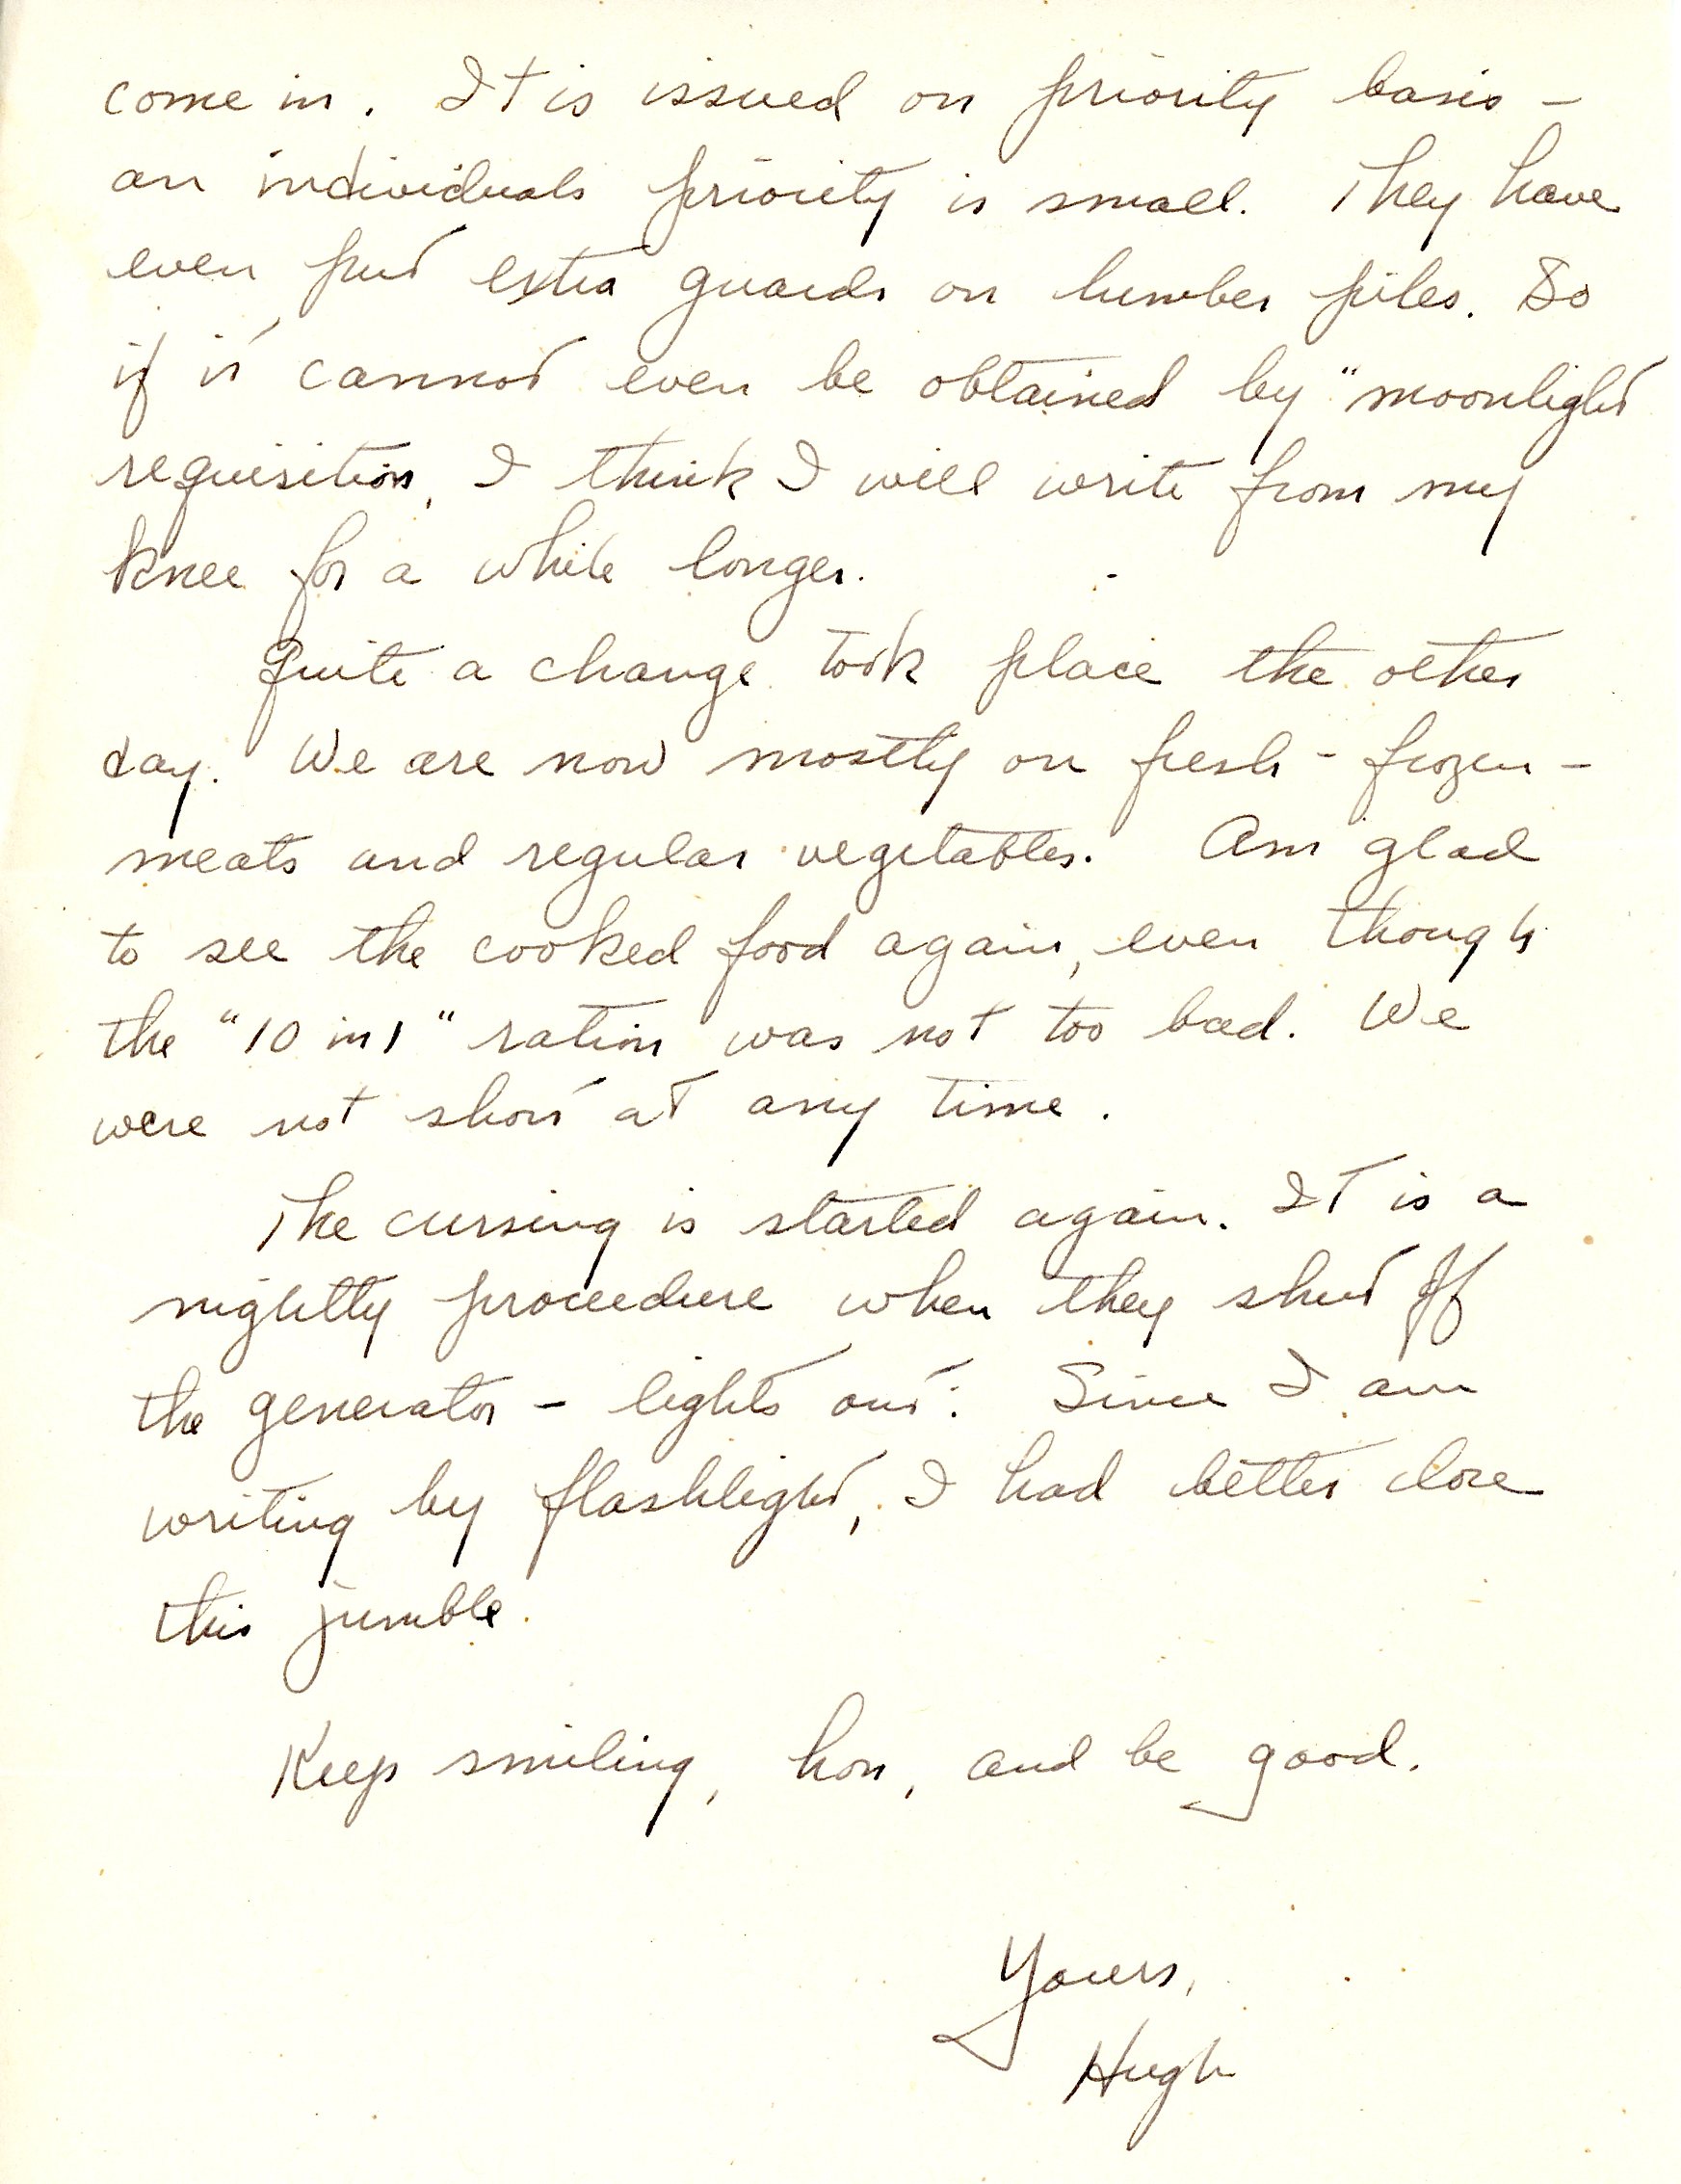 come in. It is issued on priority basis -
an individuals priority is small. They have
even put extra guards on lumber piles. So
if it cannot even be obtained by "moonlight
requisition, I think I will write from my
knee for a while longer.
Quite a change took place the other
day. We are now mostly on fresh - frozen -
meats and regular vegetables. Am glad
to see the cooked food again, even though
the "10 in 1" ration was not too bad. We
were not short at any time.
The cursing is started again. It is a
nightly proceedure when they shut off
the generator - lights out. Since I am
writing by flashlight, I had better close
this jumble.
Keep smiling, hon, and be good.
Yours,
Hugh